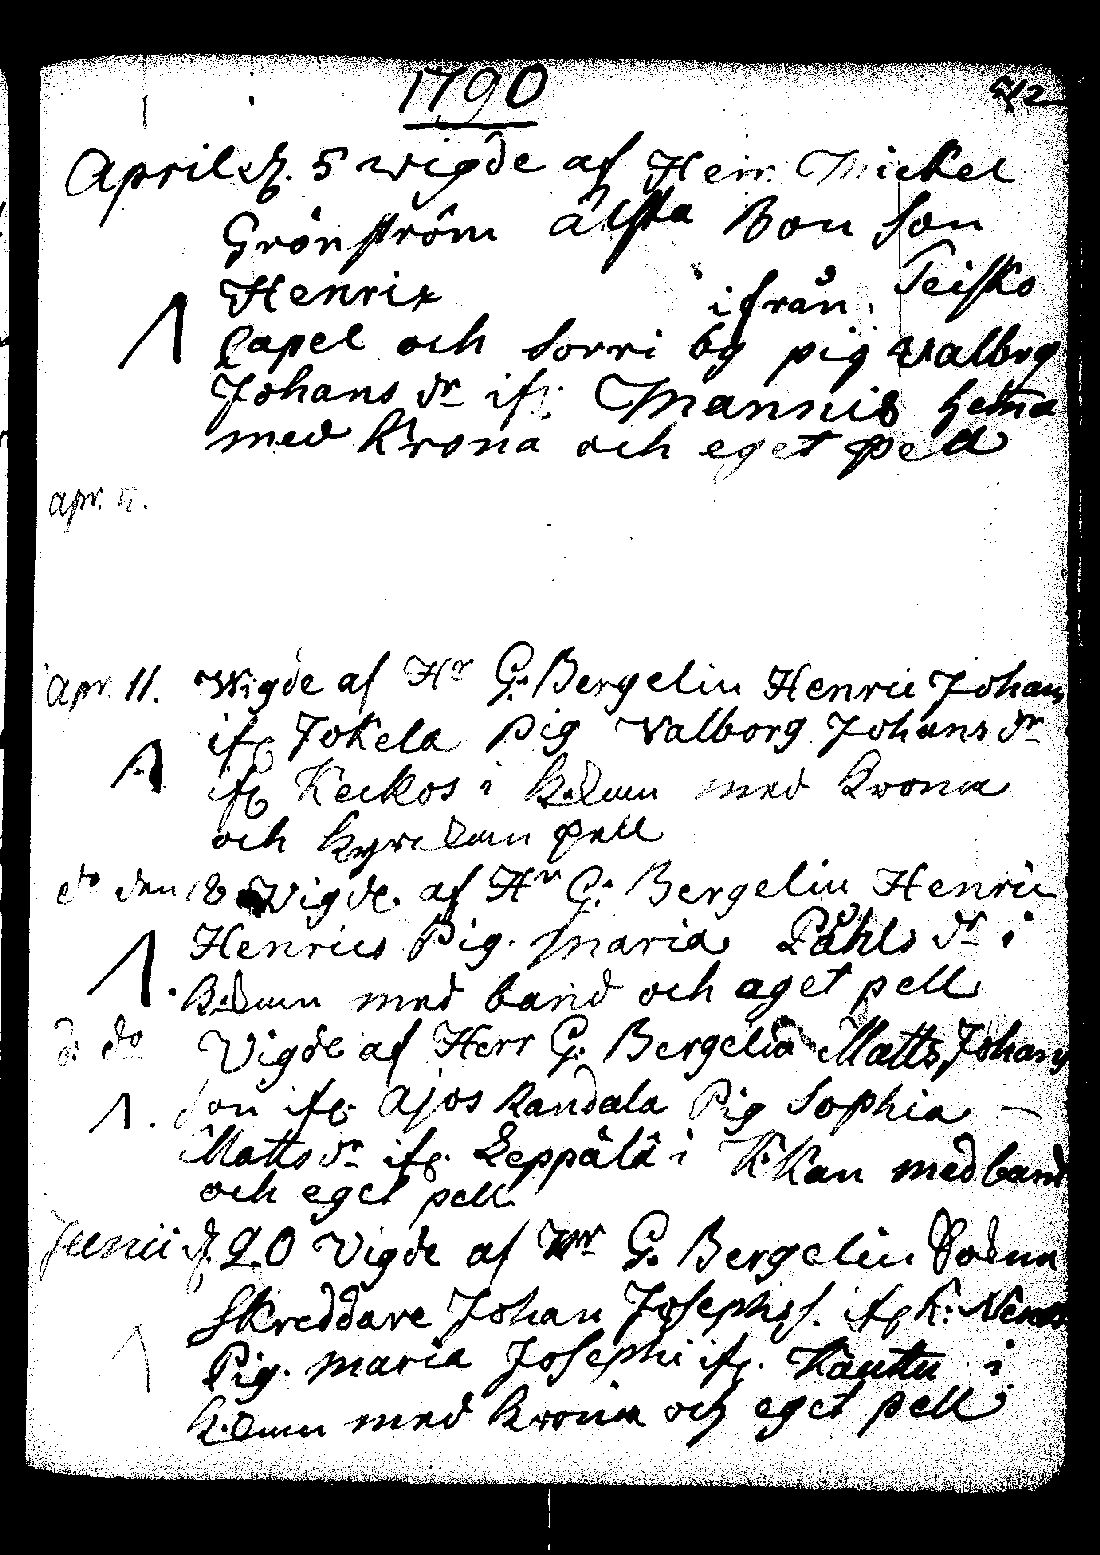 1790
April d. 5 wigde af Herr Mickel
Grönström älsta Bon son
Henrix ifrån Teisko
Capel och Sorri by pig Valbrg
Johans dr ifr. Mannis hema
med Krona och eget pell
apr.
apr. 11. Wigde af Hr G: Bergelin Henric Johans
ifr Jokela Pig Valborg Johans dr
ifr Keckos i med krona
och pell
do den 18 Vigde af Hr G: Bergelin Henric
Henrics Pig. Maria Påhls dr i
med band och aget pell
d: do Vigde af Herr G: Bergelin Matts Johans
son ifr. Ajos Kandala Pig Sophia
Matts dr ifr. Leppälä i med band
och eget pell
Junii d. 20 Vigde af Hr G. Bergelin
Skreddare Johan Josephs s. ifr K:
Pig. Maria Josephi ifr. i
med krona och eget pell